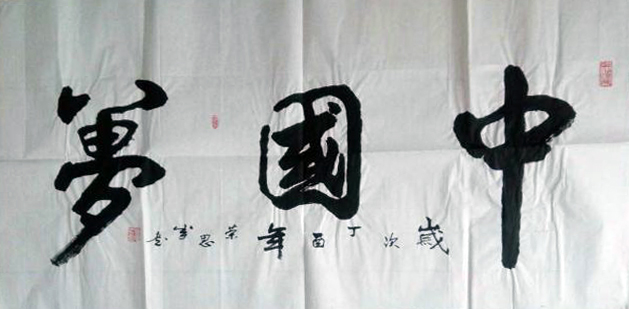 中國夢
歲次丁酉年榮思